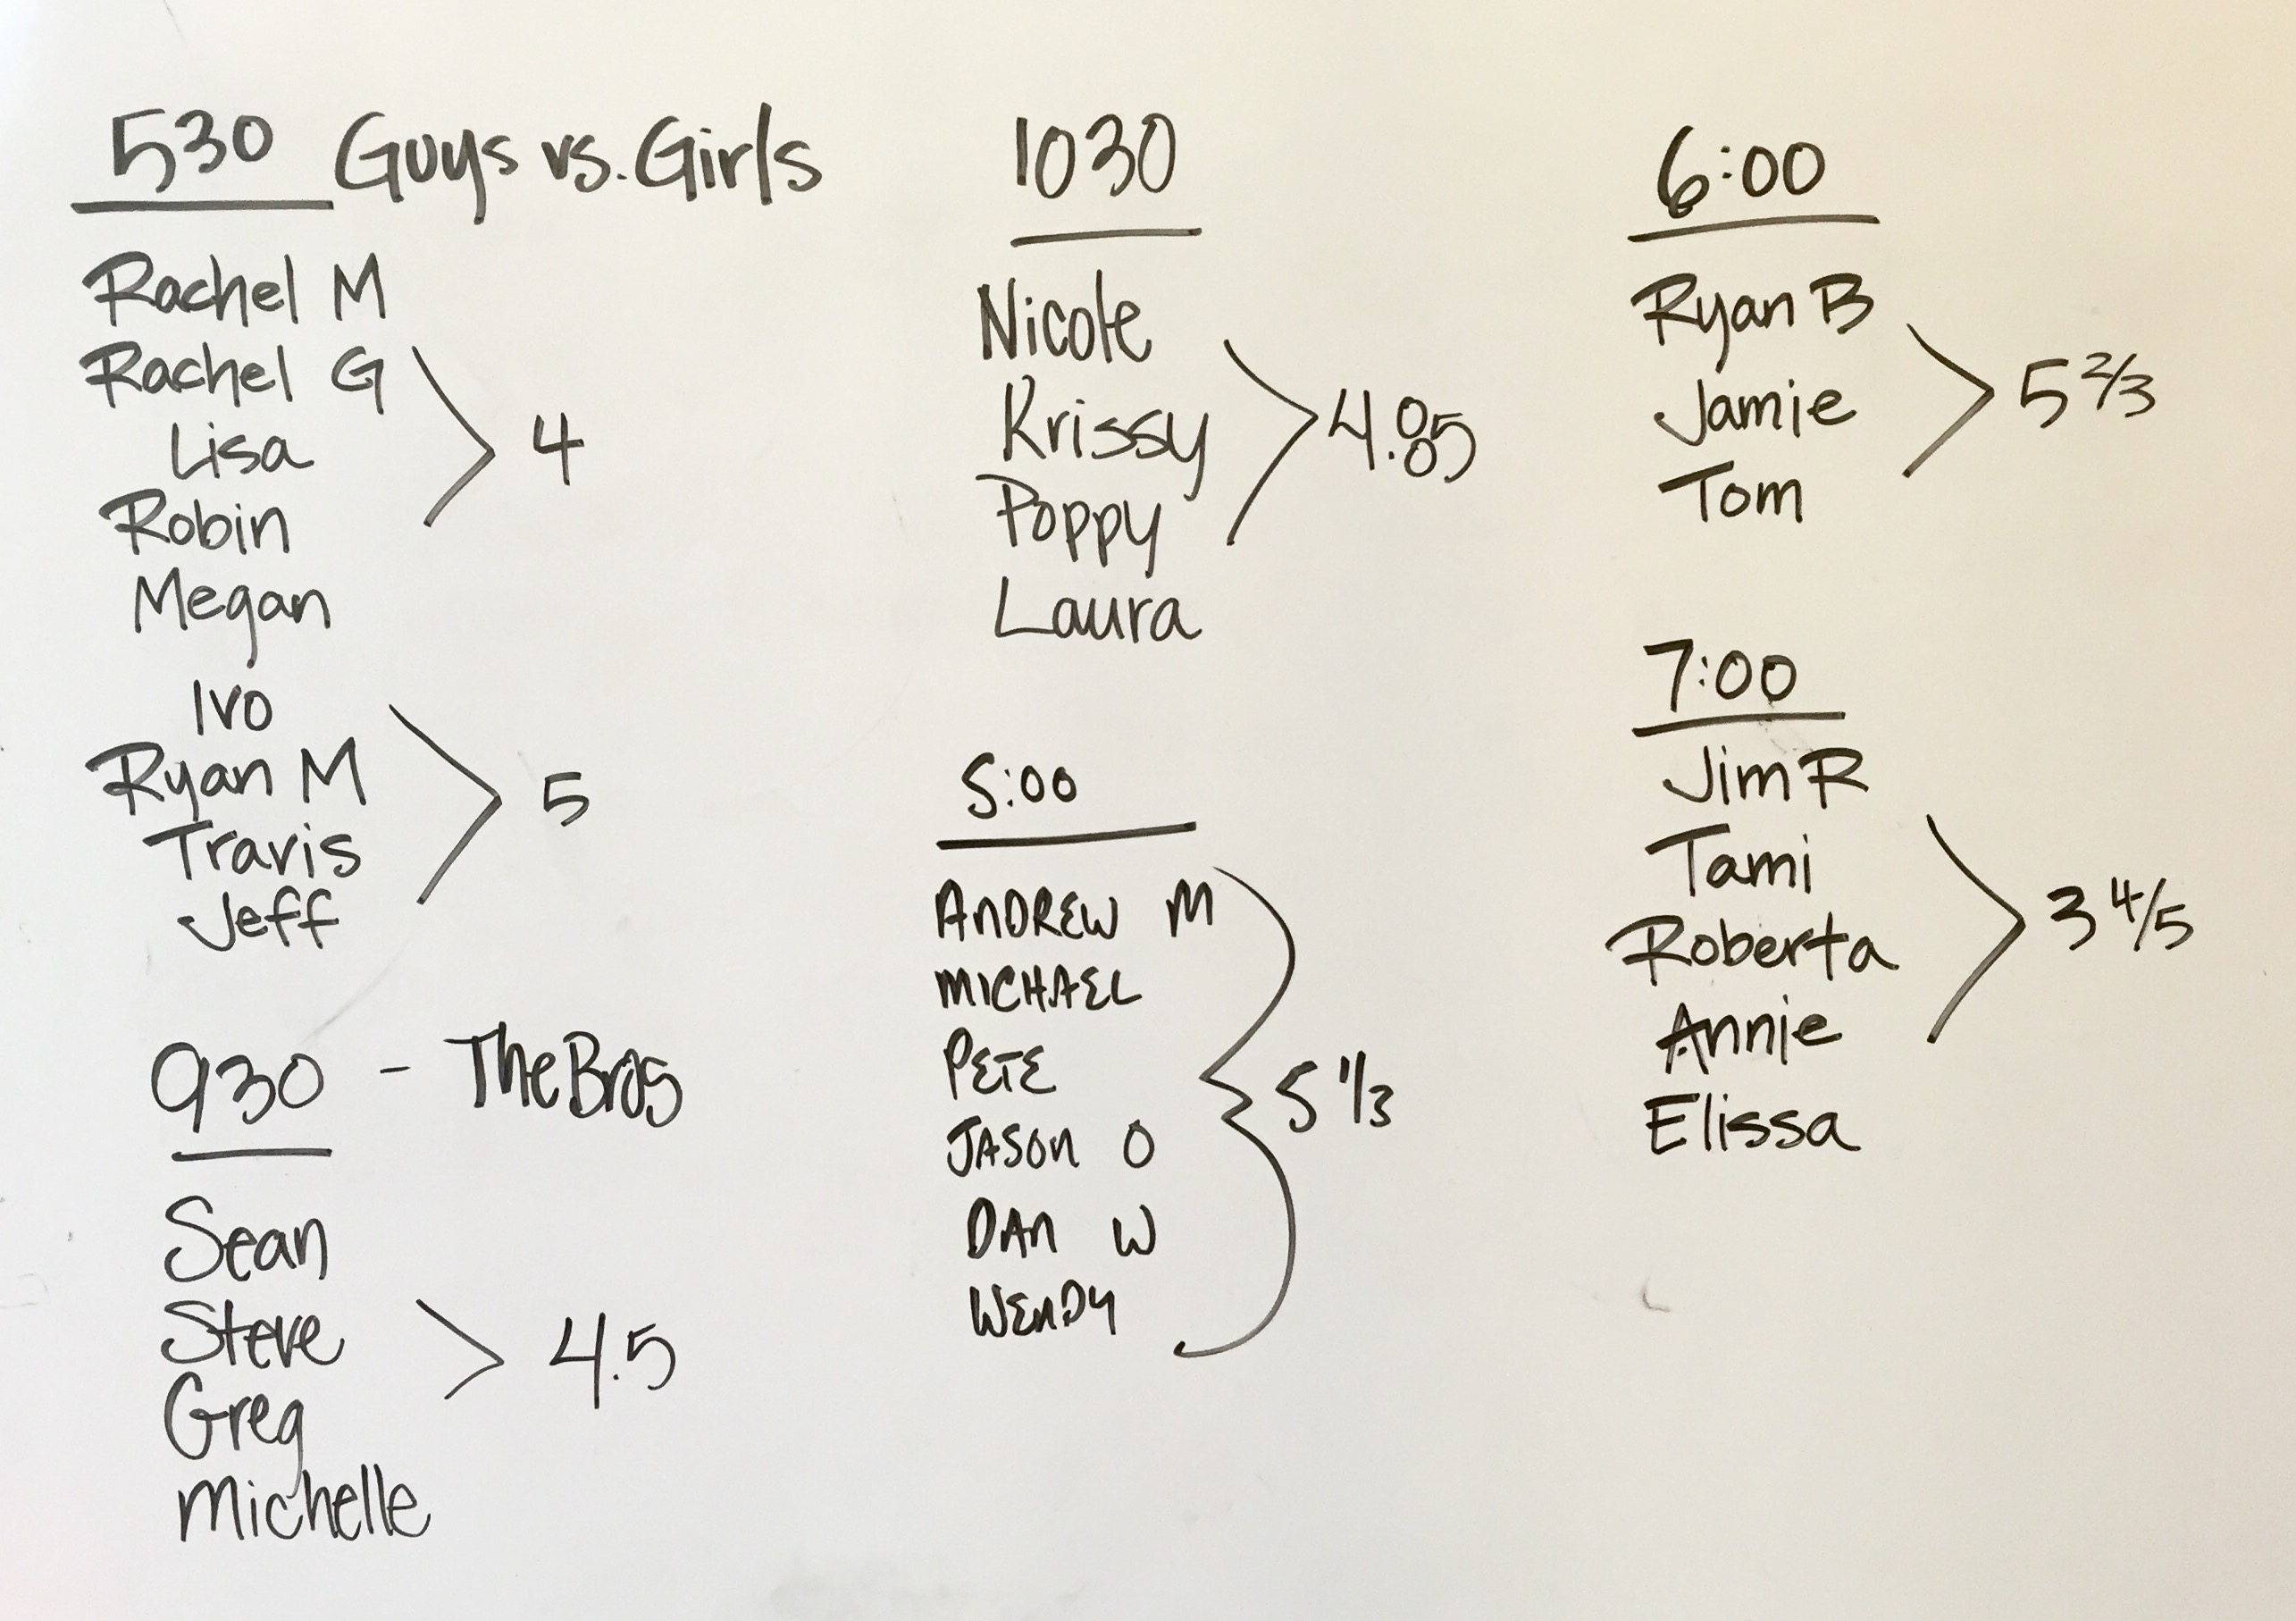 530 Guys vs. Girls
Rachel M
Rachel G
Lisa
Robin
Megan
4
Ivo
Ryan M
Travis
Jeff
5
930 - The Bros
Sean
Steve
Greg
Michelle
4.5
1030
Nicole
Krissy
Poppy
Laura
4.85
5:00
ANDREW M
MICHAEL
PETE
JASON O
DAN W
WENDY
5 1/3
6:00
Ryan B
Jamie
Tom
5 2/3
7:00
Jim R
Tami
Roberta
Annie
Elissa
3 4/5